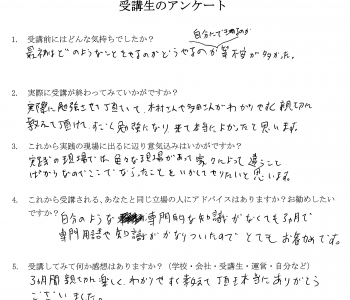 受講生のアンケート
1. 受講前にはどんな気持ちでしたか？
自分にできるのか
最初はどのようなことをやるのかどうやるのか等不安が多かった。
2. 実際に受講が終わってみていかがですか？
実際に勉強させて頂いて、木村さんや多田さんがわかりやすく親切に
教えて頂けて、すごく勉強になり、来て本当によかったと思います。
3. これから実践の現場に出るに辺り意気込みはいかがですか？
実践の現場では色々な現場があって家々によって違うこと
ばかりなのでここでならったことをいかしてやりたいと思います。
4. これから受講される、あなたと同じ立場の人にアドバイスはありますか？お勧めしたい
ですか？
自分のような専門的な知識がなくても3ヶ月で
専門用語や知識がかなりついたのでとてもお勧めです。
5. 受講してみて何か感想はありますか？（学校・会社・受講生・運営・自分など）
3ヶ月間親切に楽しくわかりやすく教えて頂き本当にありがとう
ございました。